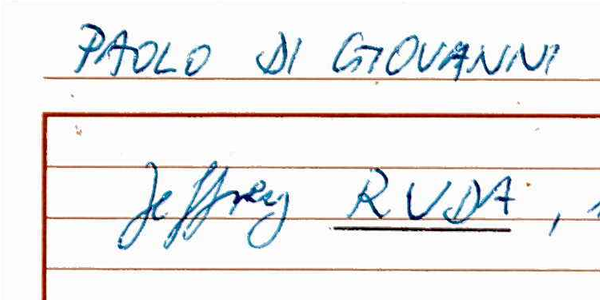 PAOLO DI GIOVANNI
Jeffrey RUDA,